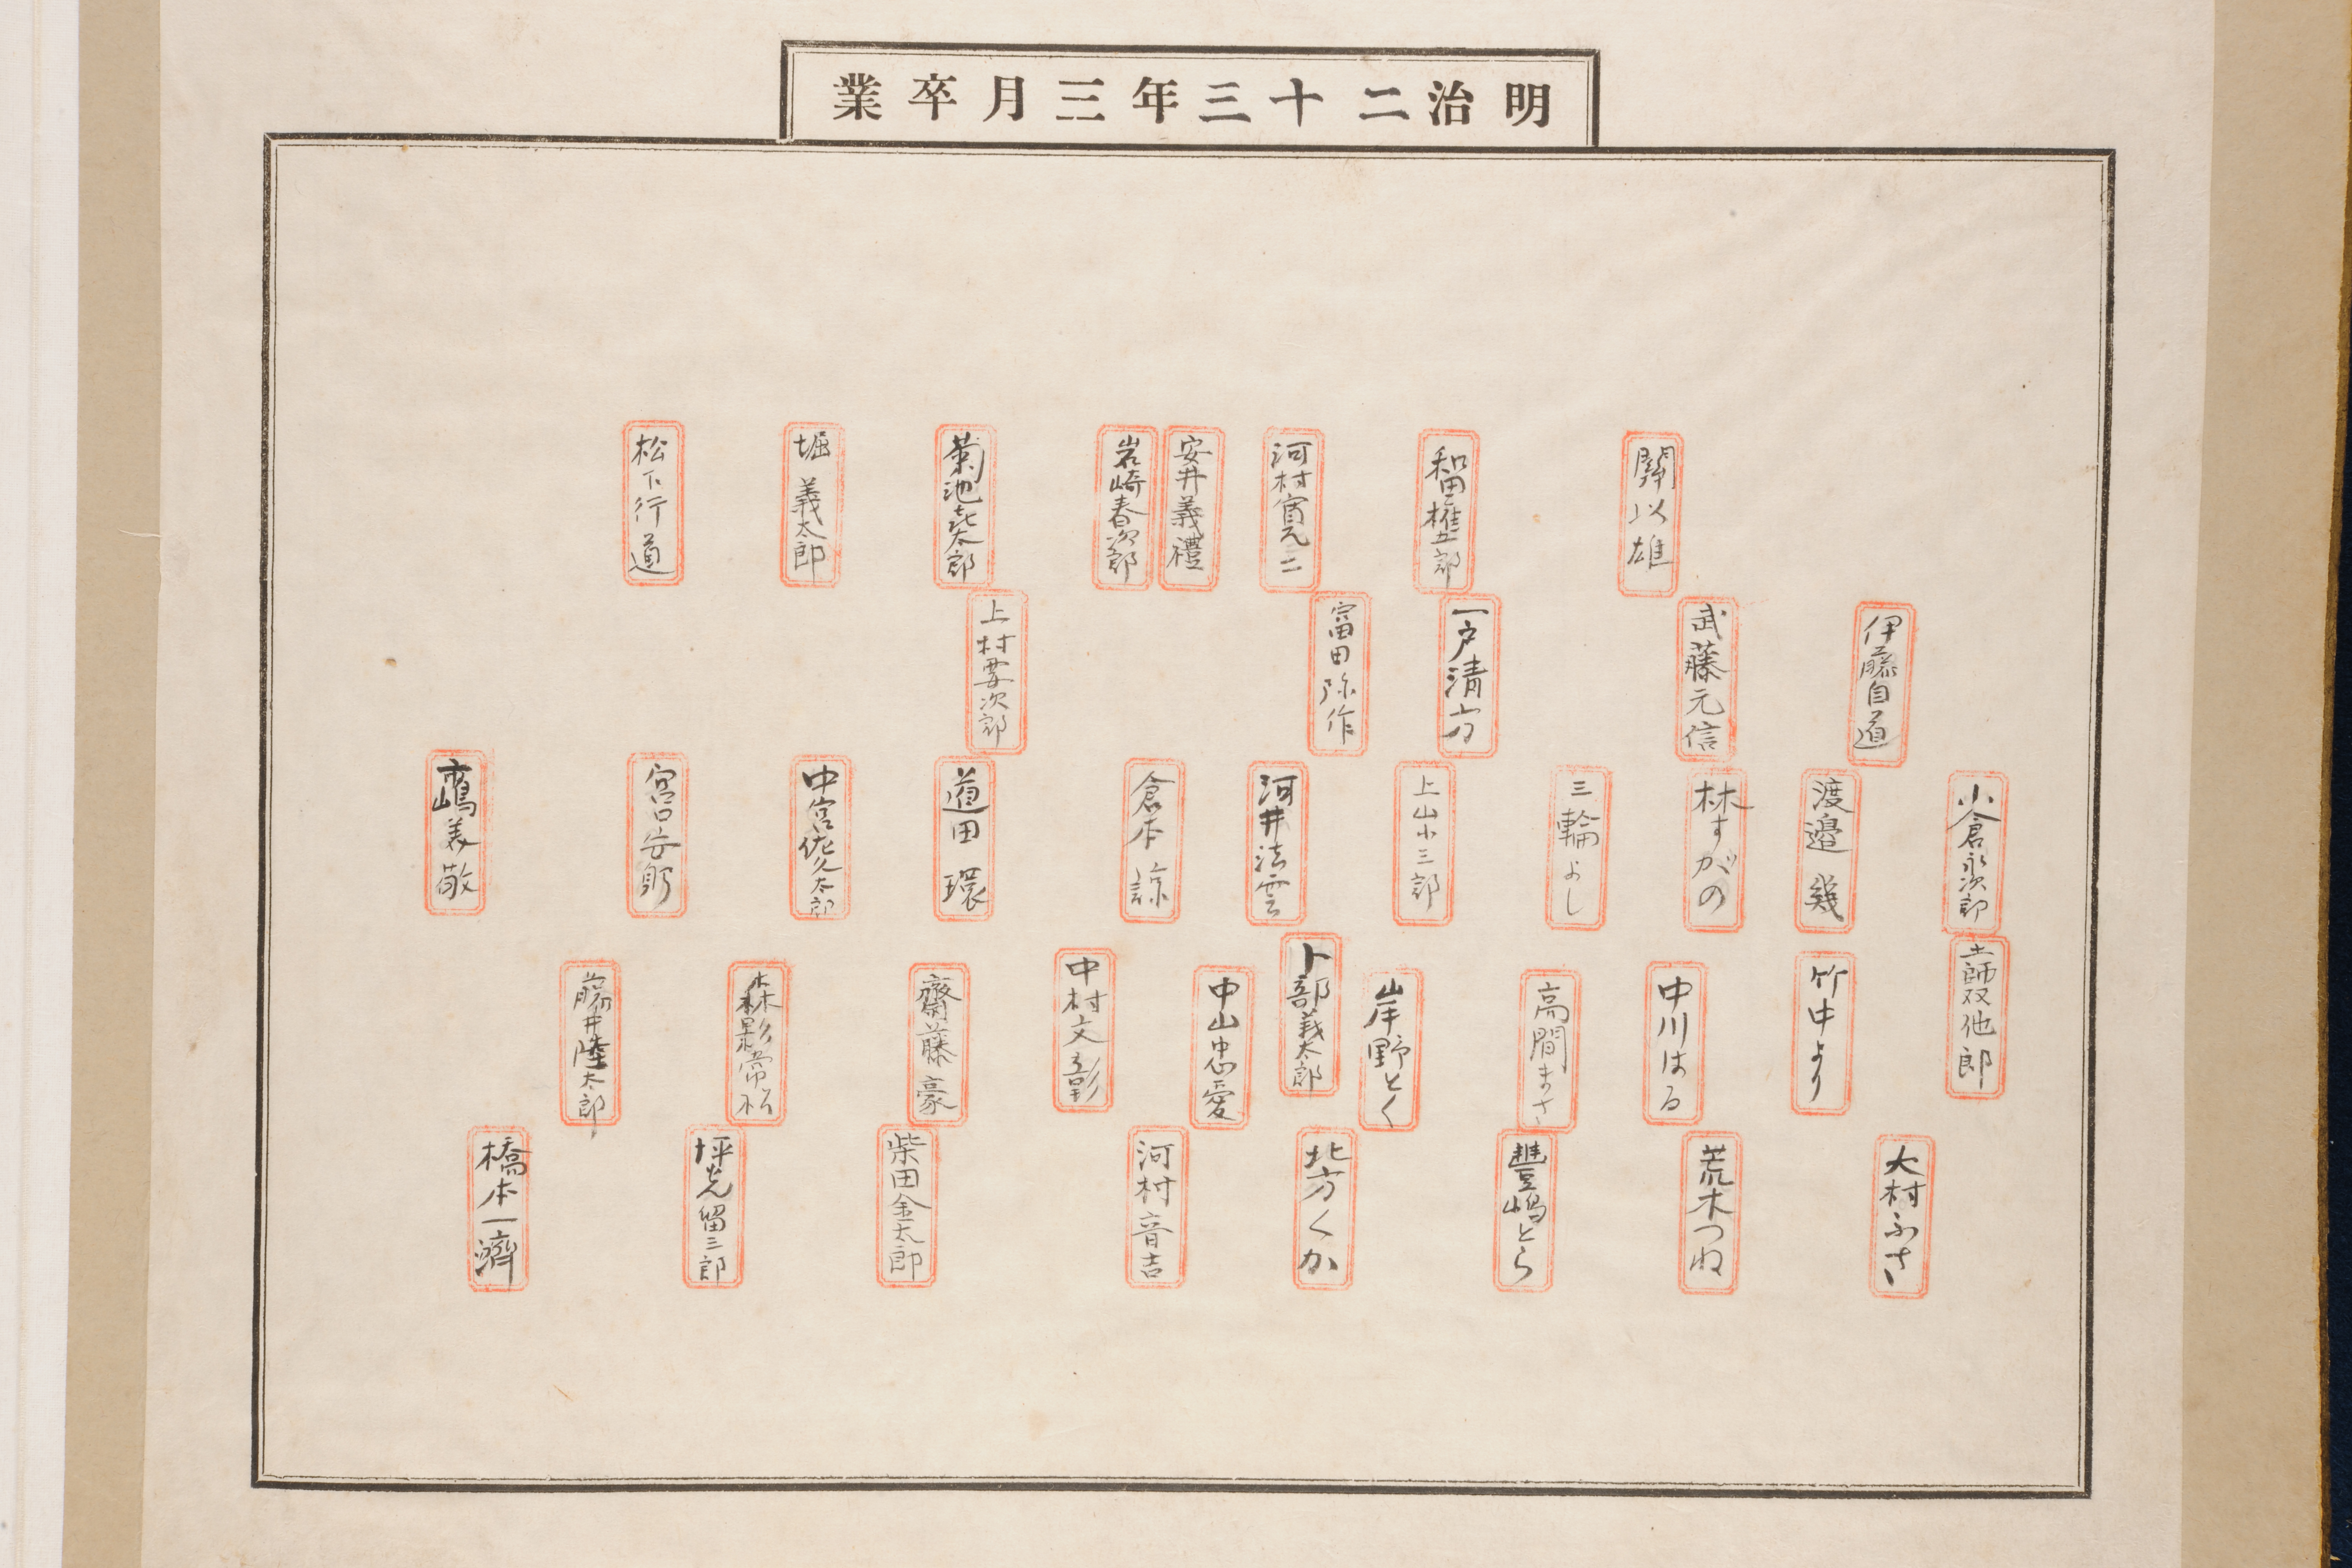 明治二十三年三月卒業
關以雄
和田權五郎
河村寅元二
安井義禮
岩崎春次郎
菊池㐂太郎
堀義太郎
松下行道
伊藤自道
武藤元信
一戸清方
富田弥作
上村要次郎
小倉永次郎
渡邉幾
林すがの
三輪よし
上山小三郎
河井法雲
倉本諒
道田環
中宮佐久太郎
宮口安躬
嶋美敬
土師双他郎
竹中より
中川はる
高間まさ
岸野とく
卜部義太郎
中山忠愛
中村文彰
齋藤豪
森影常松
藤井陸太郎
大村ふさ
荒木つね
豐嶋とら
北方くか
河村音吉
柴田金太郎
坪光留三郎
橋本一濟